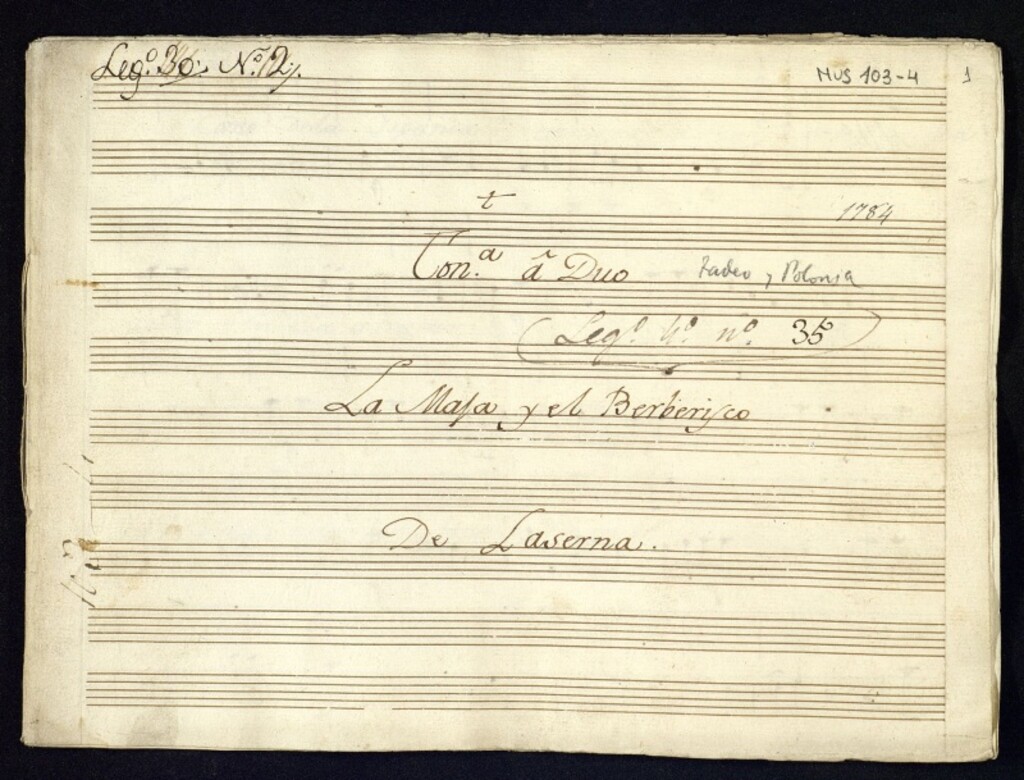 Leg.º 30. N.º 12.
MUS 103-4
1
t
1784
Ton.ª â Duo
Tadeo y Polonia
(Leg.º 4.º n.º 35)
La Maja y el Berberisco
De Laserna.